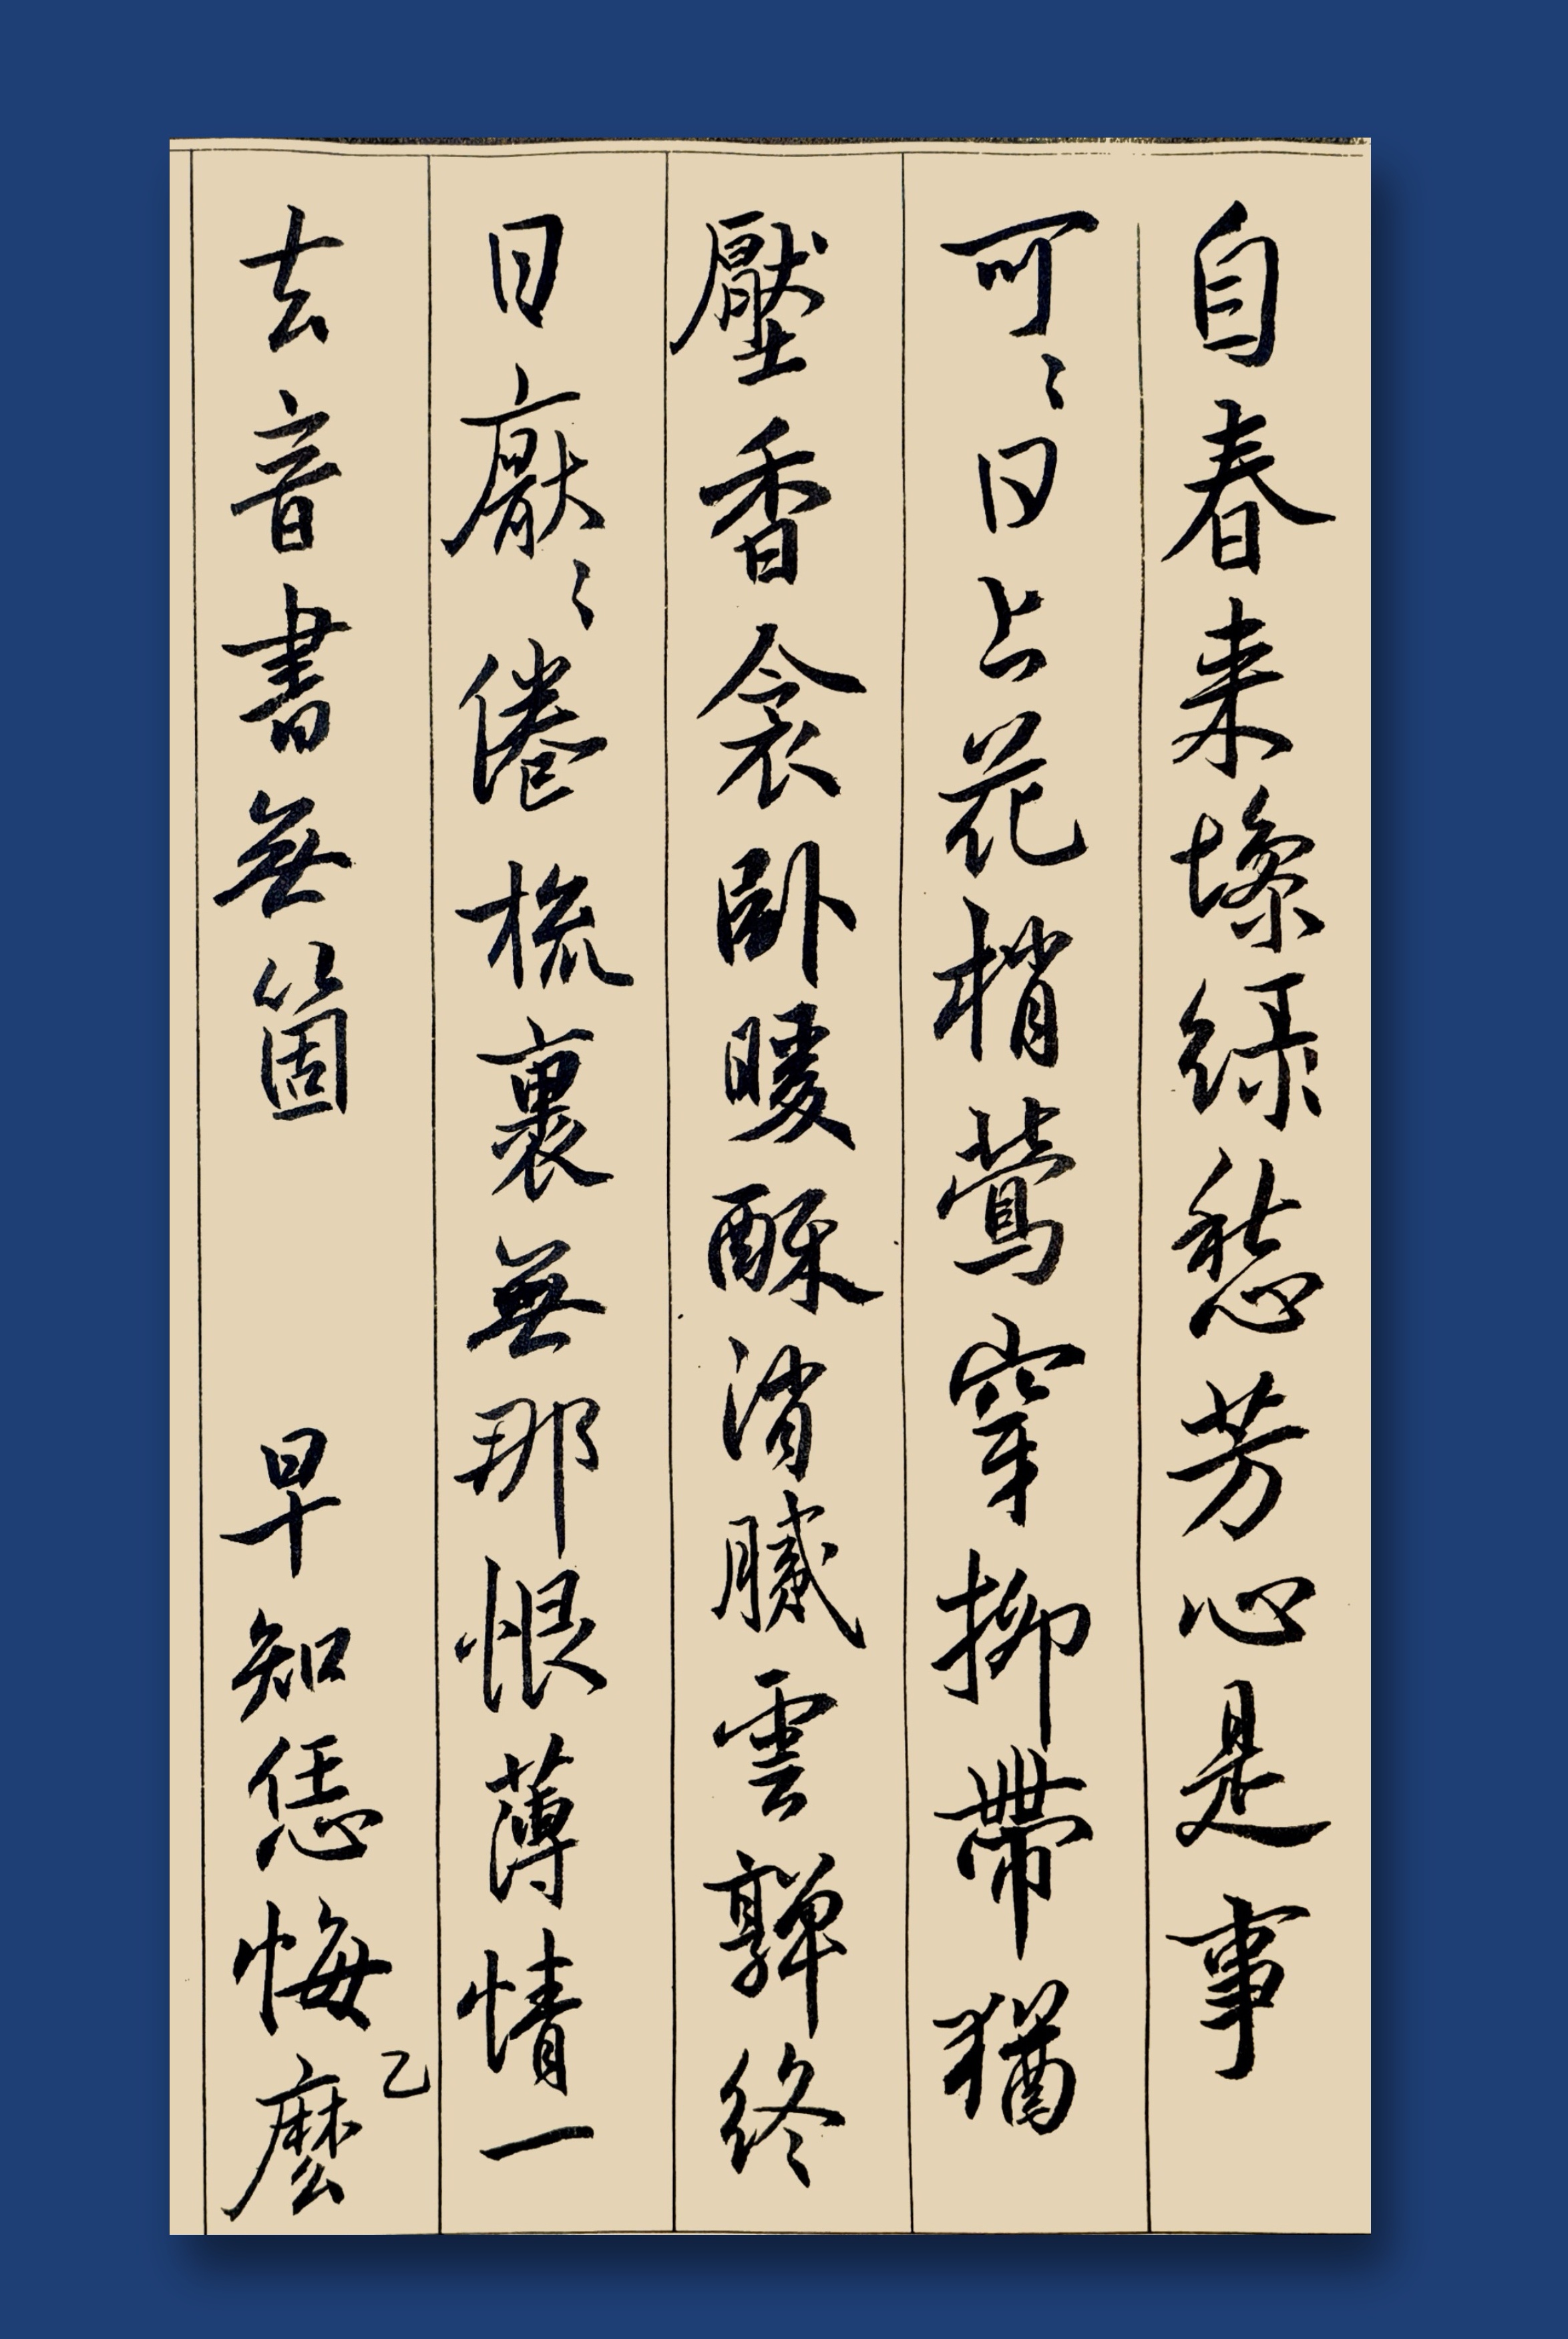 自春来慘綠愁芳心是事
可〻日上花梢鶯穿柳帶猶
壓香衾卧暖酥消膩雲嚲終
日厭〻倦梳裹無那恨薄情一
去音書無箇　早知恁悔乙麼